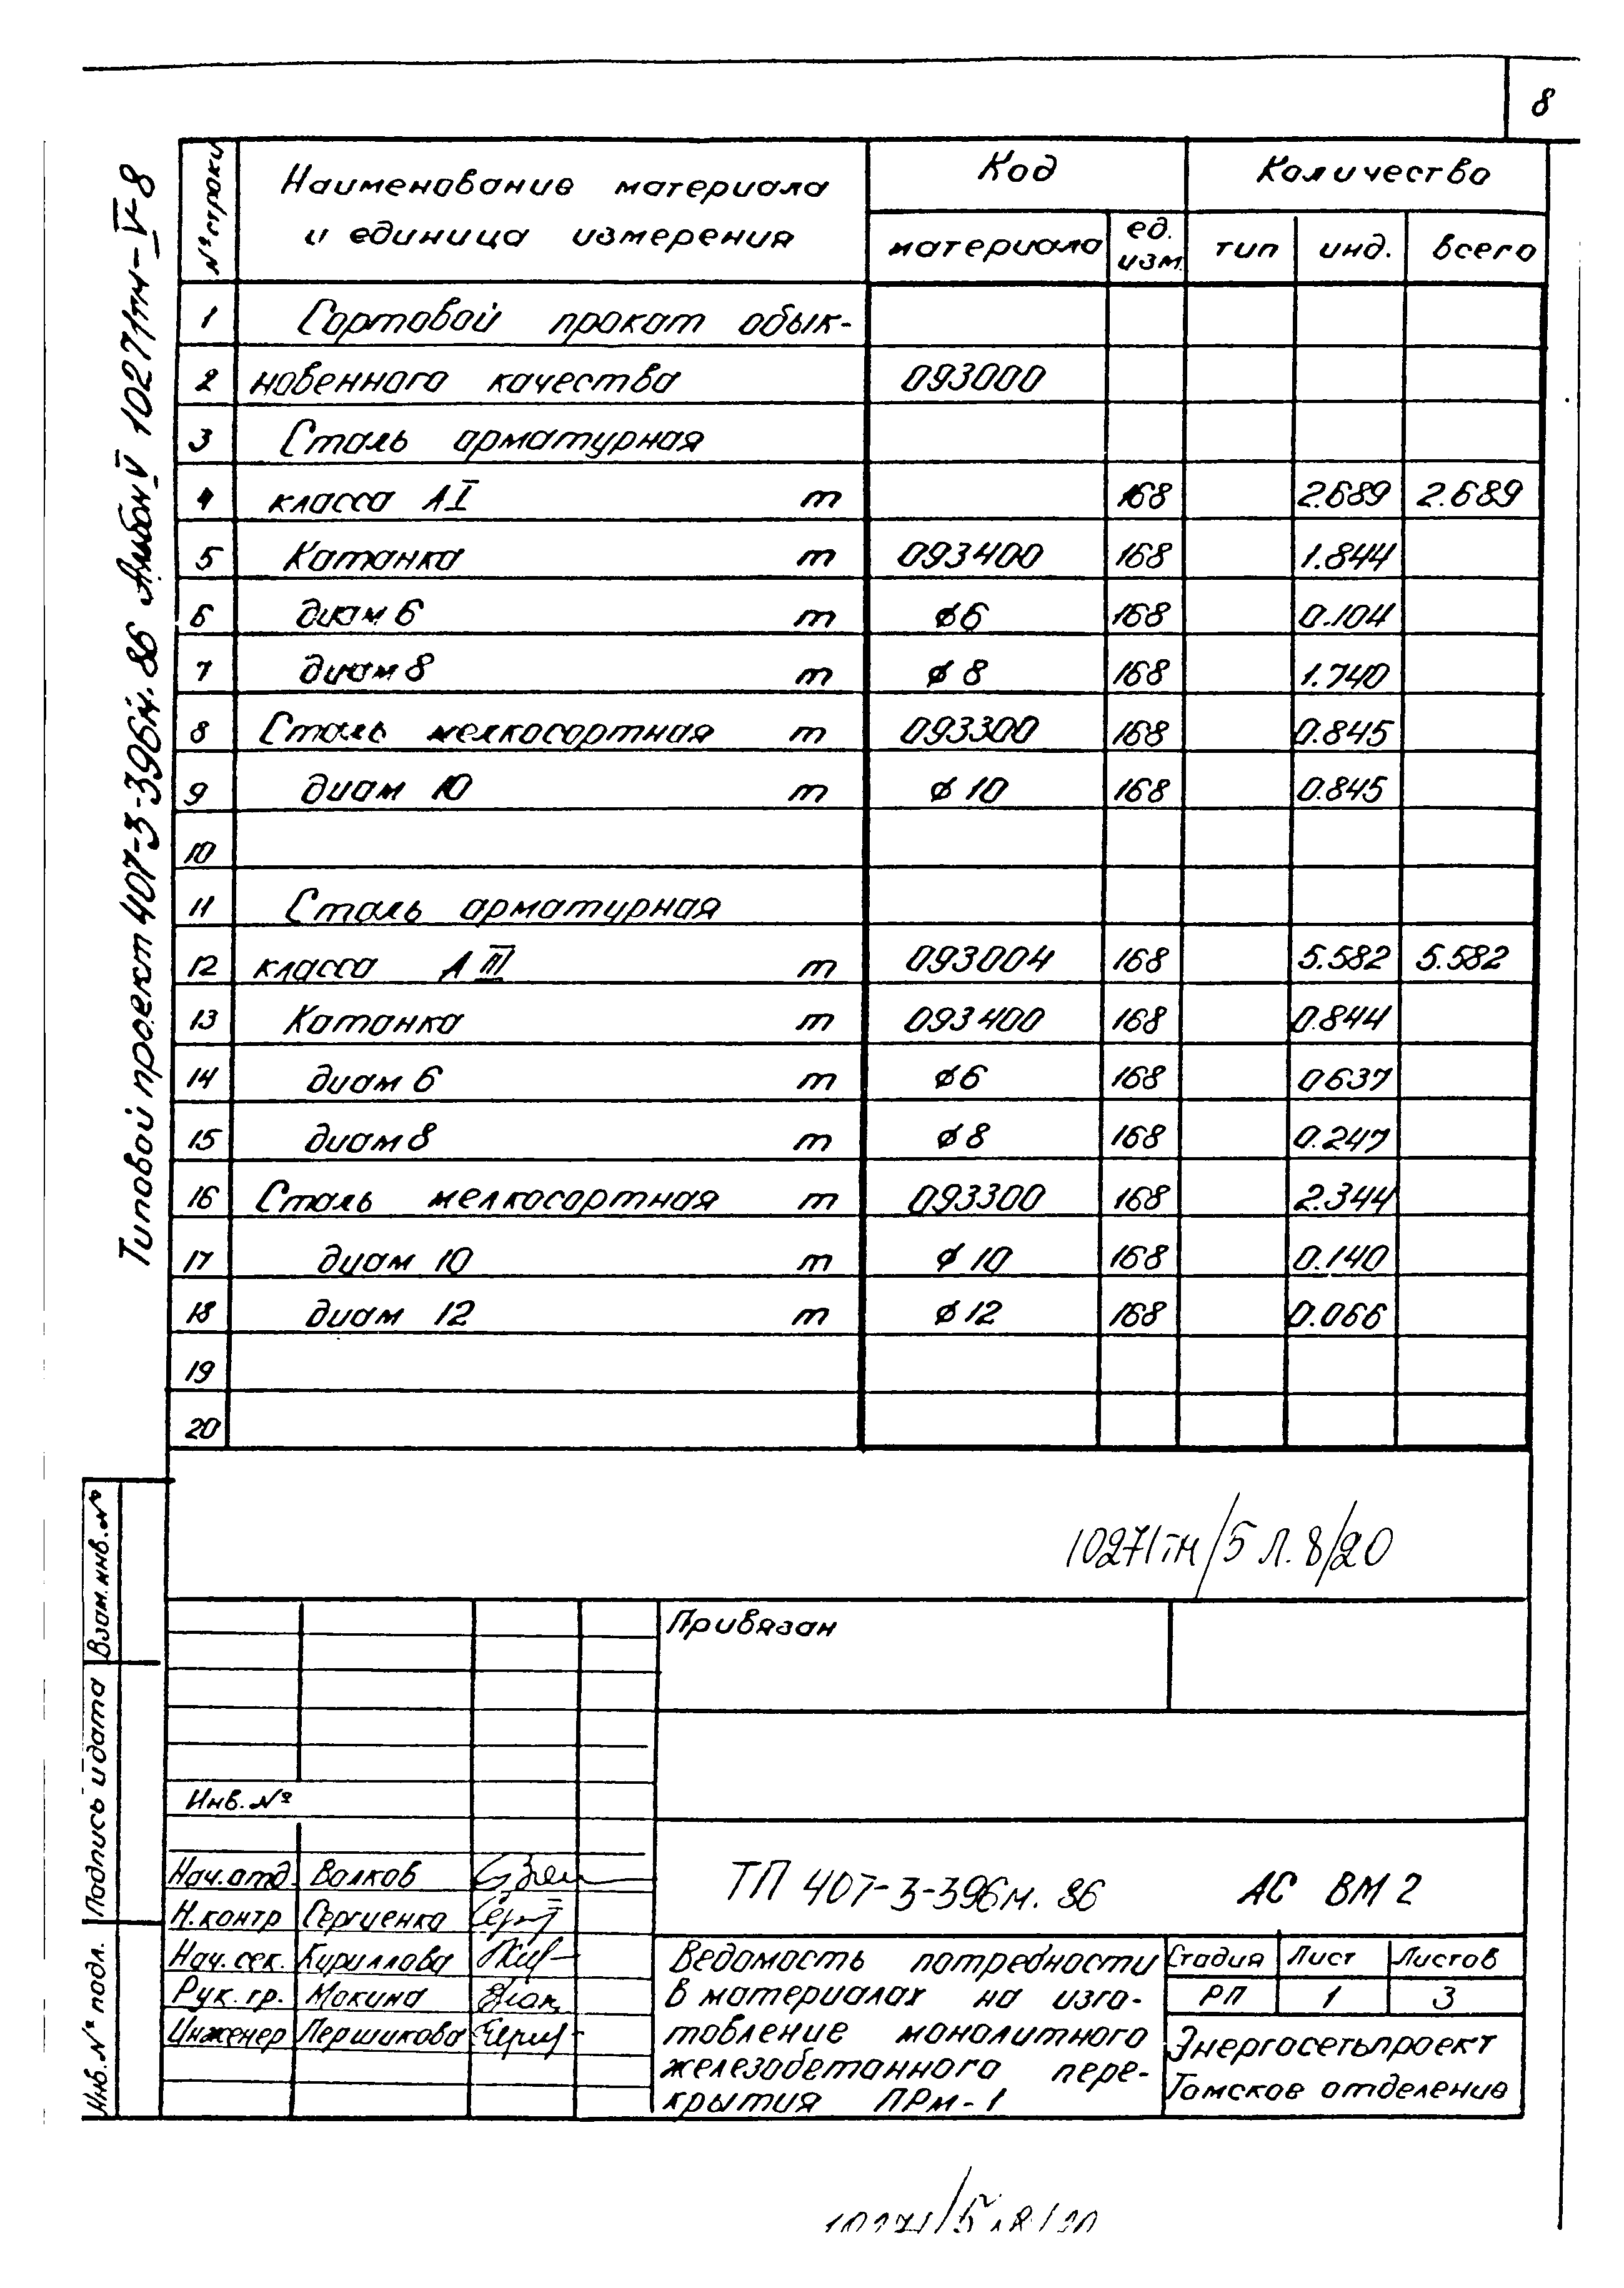 8
Типовой проект 407-3-396м.86 Альбом V 10271тм-V-8
№ строки
Наименование материала
и единица измерения
Код
Количество
материала
ед.
изм.
тип
инд.
всего
1 Сортовой прокат обык-
2 новенного качества 093000
3 Сталь арматурная
4 класса АI т 168 2.689 2.689
5 Катанка т 093400 168 1.844
6 диам 6 т ø6 168 0.104
7 диам 8 т ø 8 168 1.740
8 Сталь мелкосортная т 093300 168 0.845
9 диам 10 т ø 10 168 0.845
10
11 Сталь арматурная
12 класса А III т 093004 168 5.582 5.582
13 Катанка т 093400 168 0.844
14 диам 6 т ø6 168 0637
15 диам 8 т ø 8 168 0.247
16 Сталь мелкосортная т 093300 168 2.344
17 диам 10 т ø 10 168 0.140
18 диам 12 т ø 12 168 0.066
19
20
10271тм/5 Л. 8/20
Взам.инв.№
Подпись и дата
Инв.№ подл.
Привязан
Инв.№
Нач.отд. Волков
Н.контр Сергиенко
Нач.сек. Кириллова
Рук.гр. Мокина
Инженер Першикова
ТП 407-3-396м.86 АС ВМ 2
Ведомость потребности
в материалах на изго-
товление монолитного
железобетонного пере-
крытия ПРм-1
Стадия Лист Листов
РП 1 3
Энергосетьпроект
Томское отделение